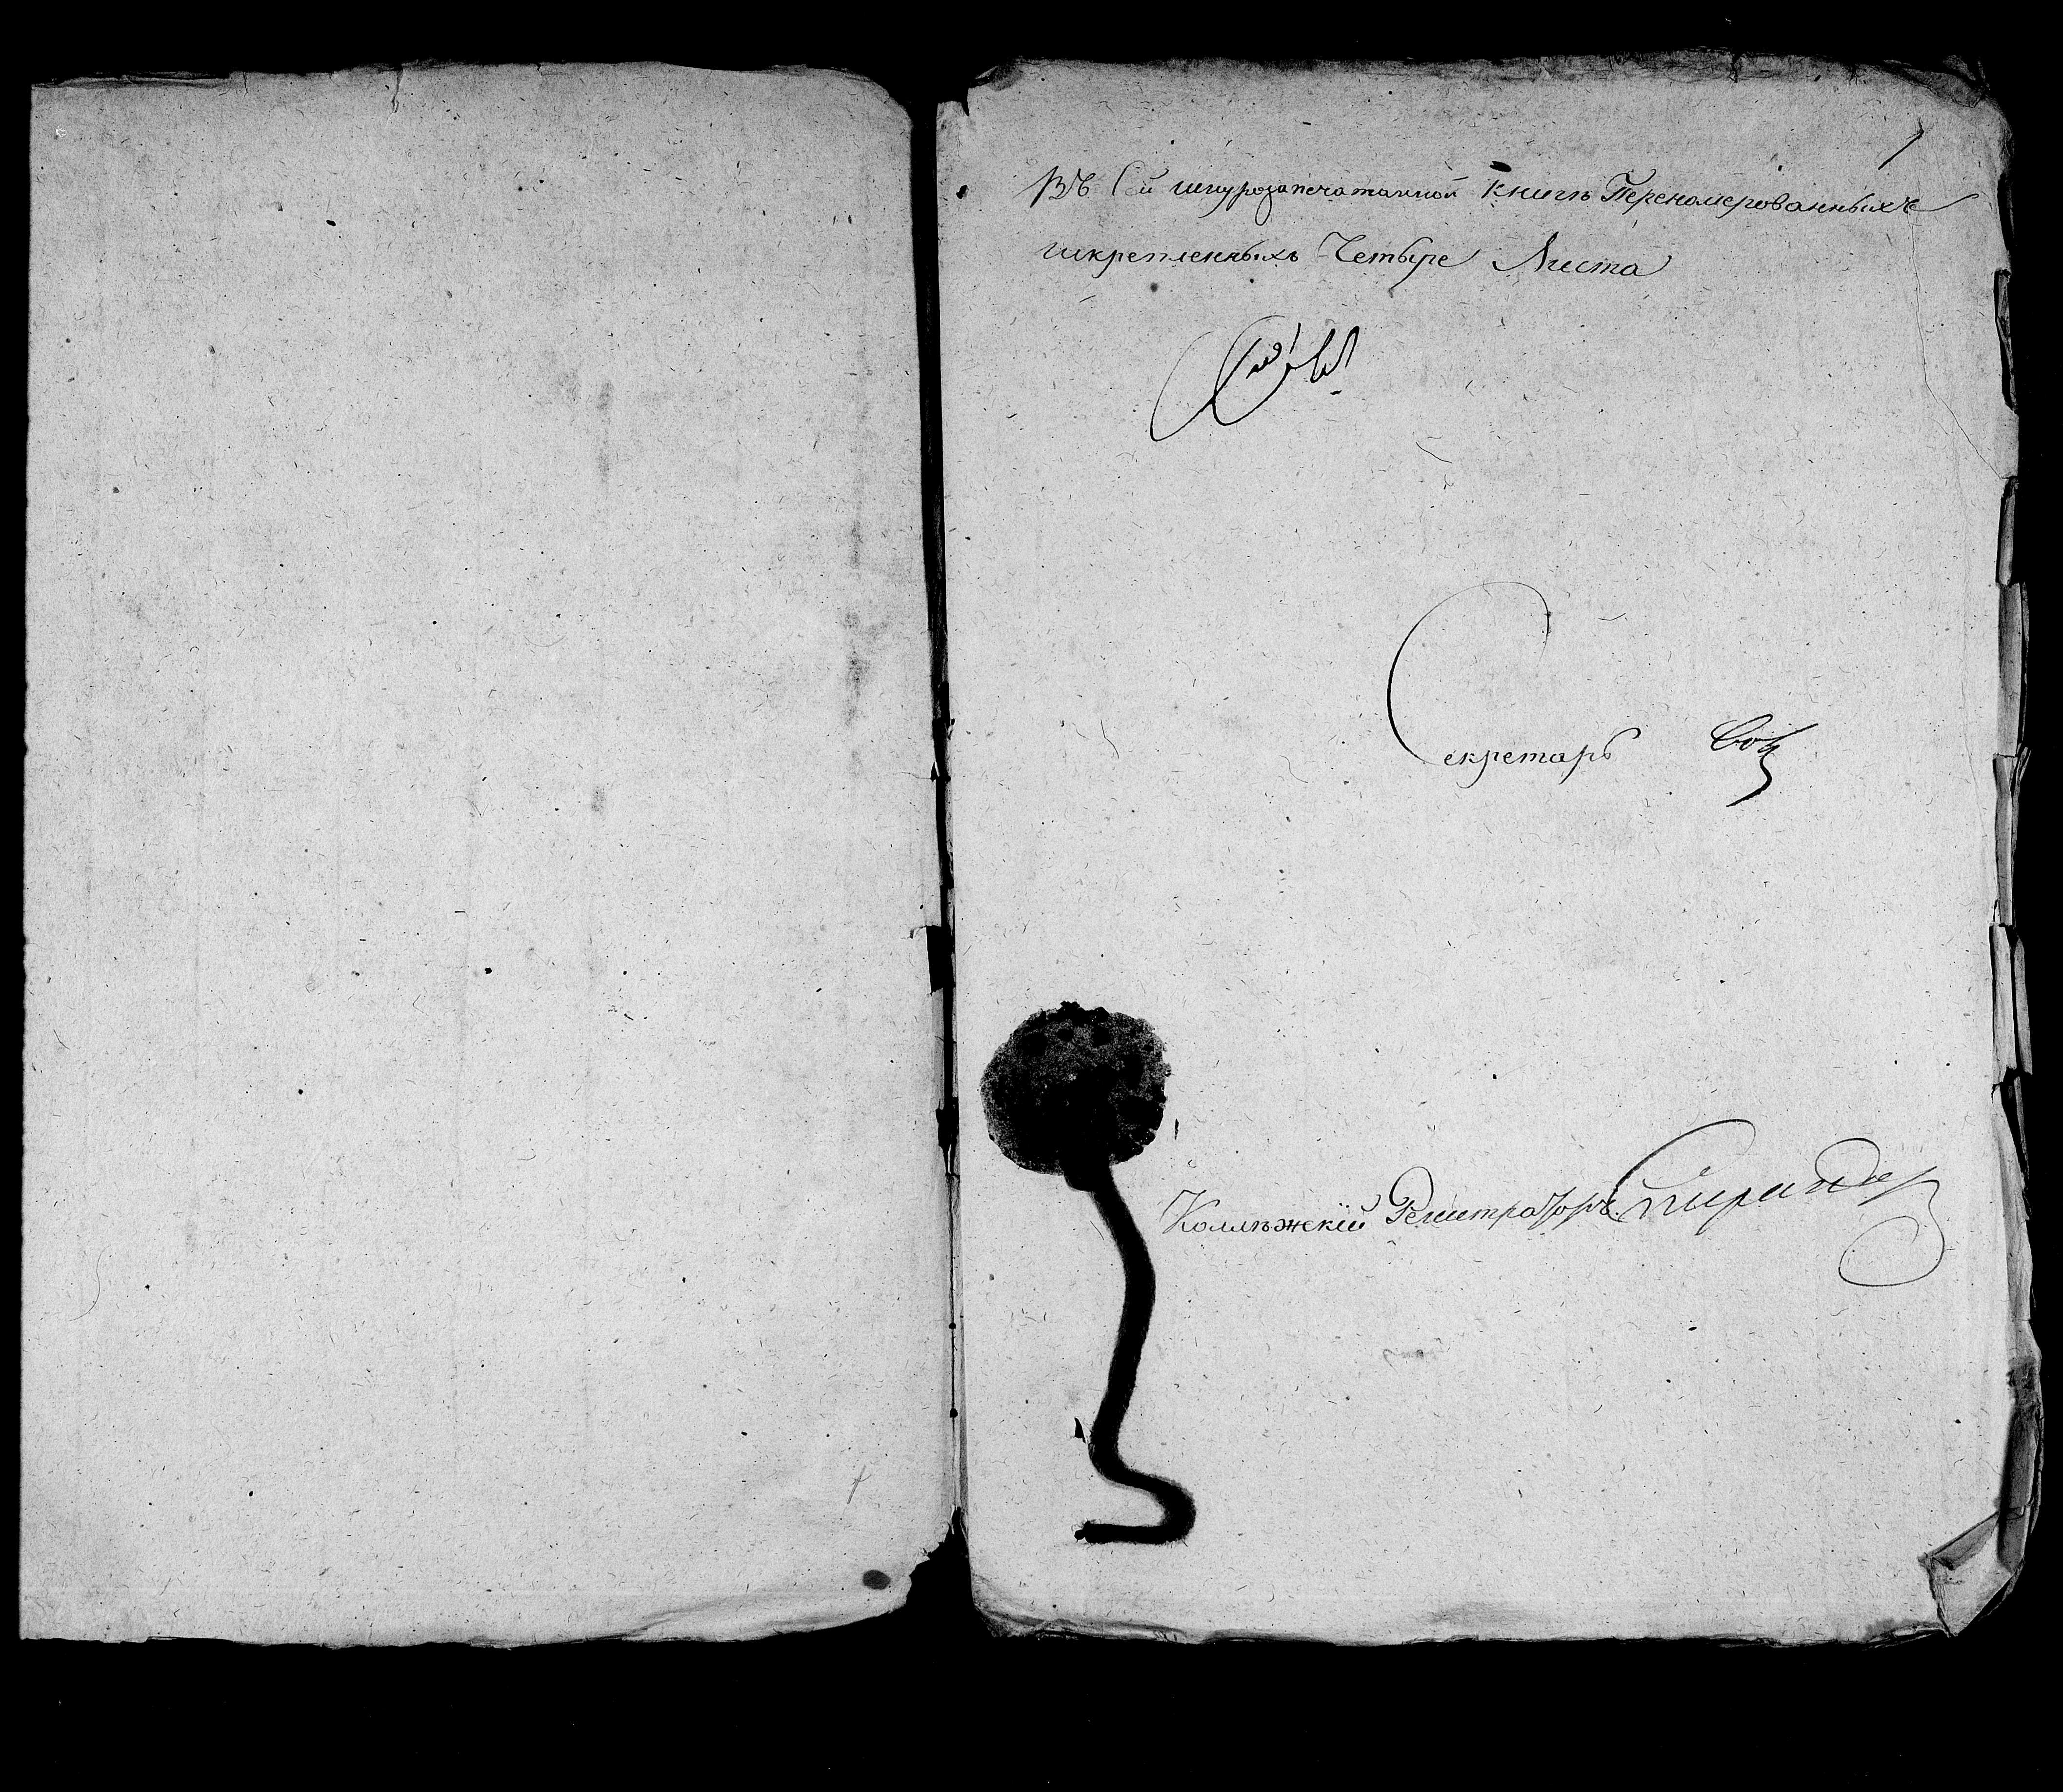 1
Въ Сей шнурозапечатанной книгѣ Переномерованныхъ
искрепленныхъ Четыре Листа
Секретарь
Коллѣжскій Регистраторъ